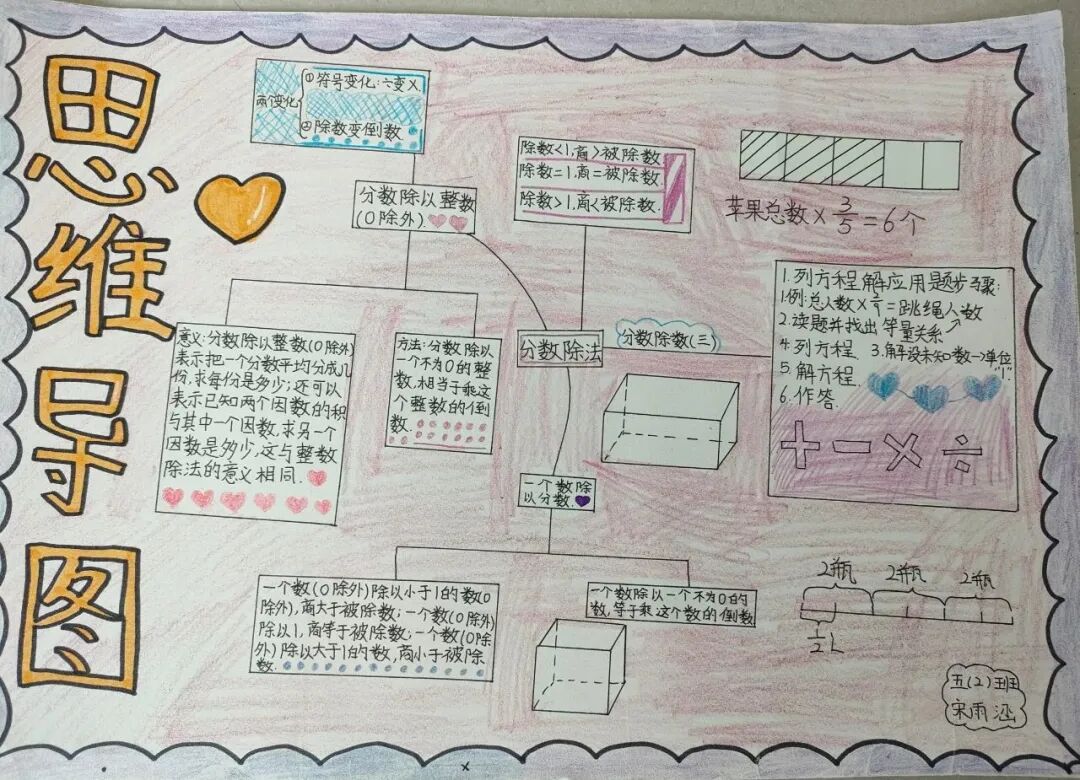 思维导图
两变化
①符号变化:÷变×.
②除数变倒数
分数除以整数
(0除外).
除数<1,商>被除数
除数=1,商=被除数.
除数>1,商<被除数.
苹果总数×3/5=6个
意义:分数除以整数(0除外)
表示把一个分数平均分成几
份,求每份是多少;还可以
表示已知两个因数的积
与其中一个因数,求另一个
因数是多少,这与整数
除法的意义相同.
方法:分数除以
一个不为0的整
数,相当于乘这
个整数的倒
数.
分数除法
分数除数(三)
1.列方程解应用题步骤:
1例:总人数× =跳绳人数
2.读题并找出等量关系
4.列方程. 3.解设未知数→单位
"1".
5.解方程.
6.作答.
+-×÷
一个数除
以分数.
一个数(0除外)除以小于1的数(0
除外),商大于被除数;一个数(0除外)
除以1,商等于被除数;一个数(0除
外)除以大于1的数,商小于被除
数.
一个数除以一个不为0的
数,等于乘这个数的倒数
2瓶 2瓶 2瓶
1/2L
五(2)班
宋雨涵